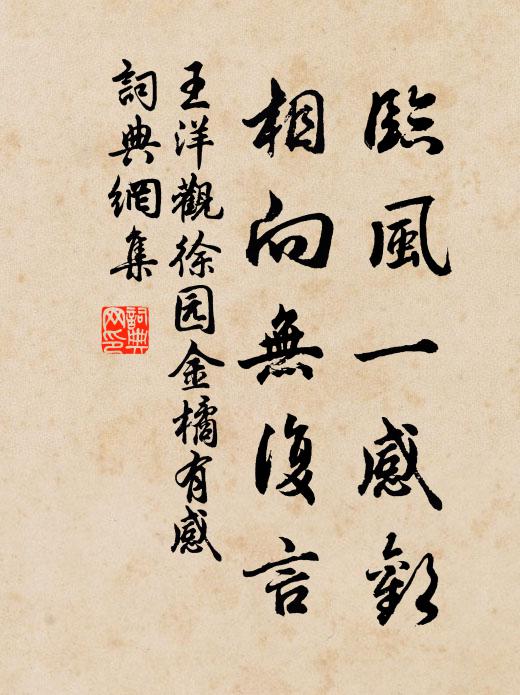 臨風一感歎
相向無復言
王洋觀徐园金橘有感
詞典網集
詞典网印